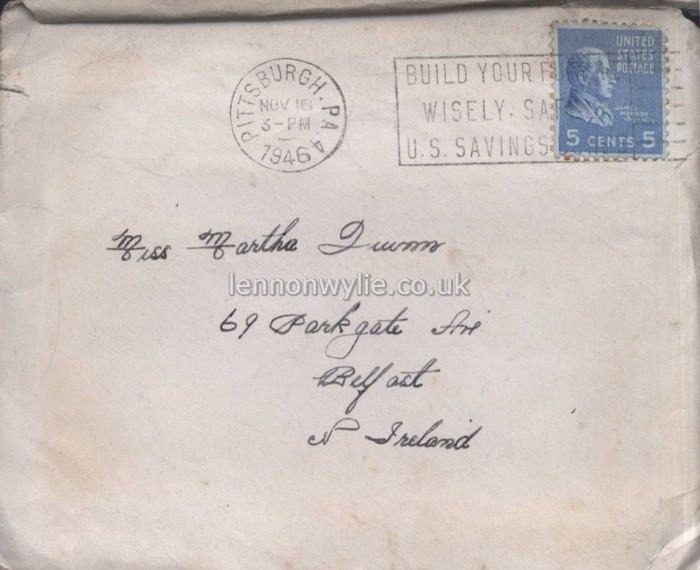 PITTSBURGH, PA. 4
NOV 16
3-PM
1946
BUILD YOUR F
WISELY, SA
U.S. SAVINGS
UNITED
STATES
POSTAGE
JAMES
MONROE
5 CENTS 5
Miss Martha
lennonwylie.co.uk
69 Parkgate Ave
Belfast
N Ireland